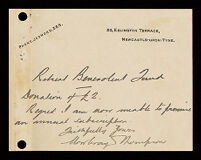 PHONE, JESMOND 323.
20, ESLINGTON TERRACE,
NEWCASTLE-UPON-TYNE.
Retired Benevolent Fund
Donation of £2.
Regret I am now unable to promise
an annual subscription.
Faithfully Yours.
Thompson